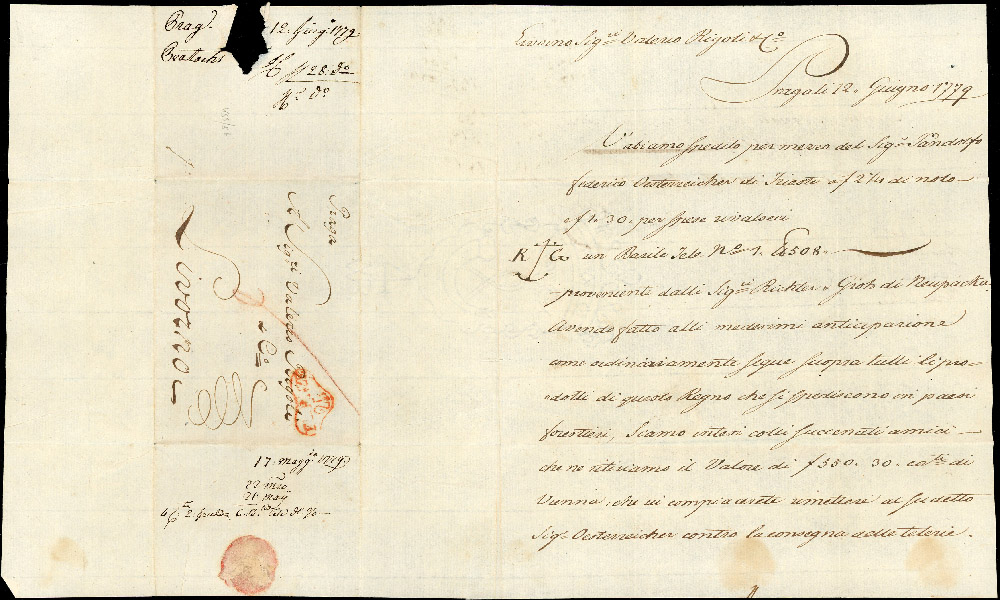 Prag.
12. Giug.º 1779
28. dº
dº
Praga
Al Sig.re Valerio Rigoli
& Cº
Livorno
17. magg.º 1779
22
21 mag
Livorno Sig.re Valerio Rigoli & Cº
Praga li 12. Giugno 1779
Vabiamo spedito per mezzo del Sig.r
federico Oesterreicher di Trieste a f 2¼ di nolo
e f 1. 30. per spese
K G un Barile Tele Nº 1. 508.
proveniente dalli Sig.ri Richter & Groh di Neupacka.
Avendo fatto alli medesimi anticipazione
come ordinariamente segue sopra tutti li pro-
dotti di questo Regno che si spediscono in paesi
forestieri, Siamo intesi colli succenati amici
che ne ritiriamo il Valore di f 550. 30. di
Vienna, che vi compiacerete rimettere al sudetto
Sig.r Oesterreicher contro la consegna delle telerie.